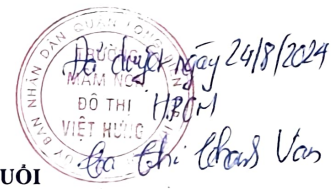 ỦY BAN NHÂN DÂN QUẬN LONG
TRƯỜNG
MẦM NON
ĐÔ THỊ
VIỆT HƯNG
Đã duyệt ngày 24/8/2024
HPCM
Thị Vân
UỔI